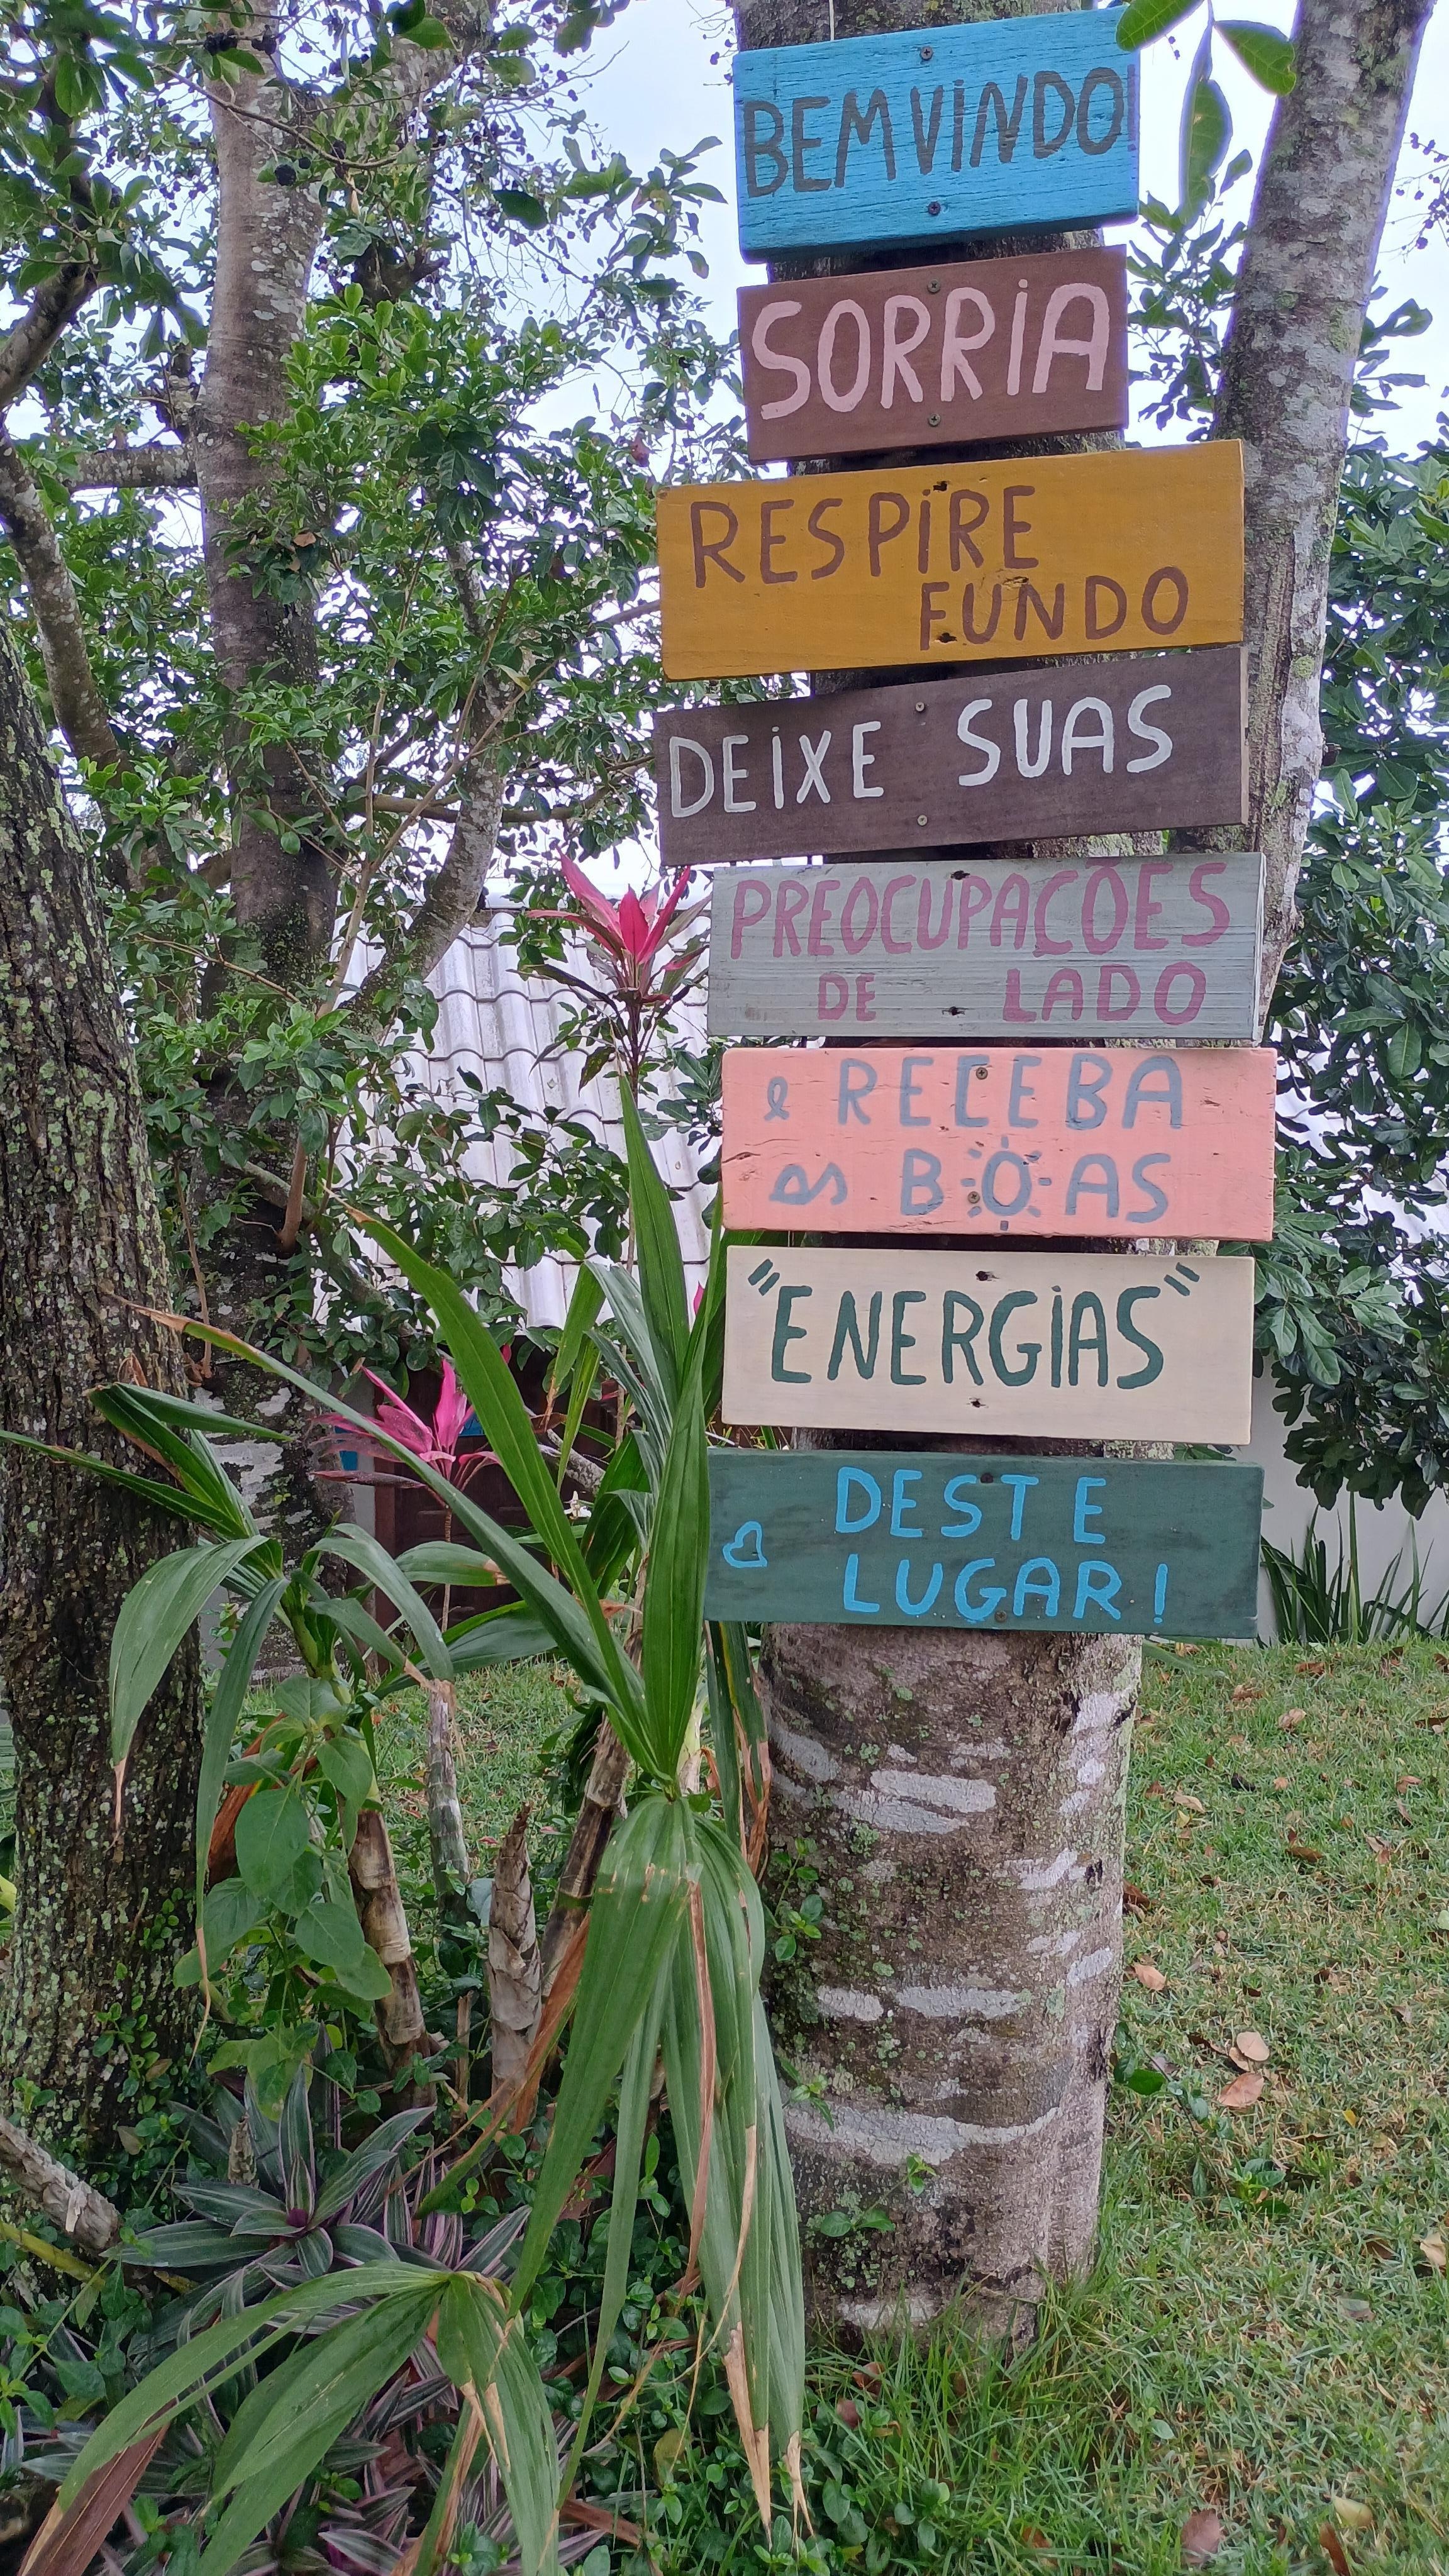 BEMVINDO!
SORRIA
RESPIRE
FUNDO
DEIXE SUAS
PREOCUPAÇÕES
DE LADO
e RECEBA
as BOAS
"ENERGIAS"
DESTE
LUGAR!